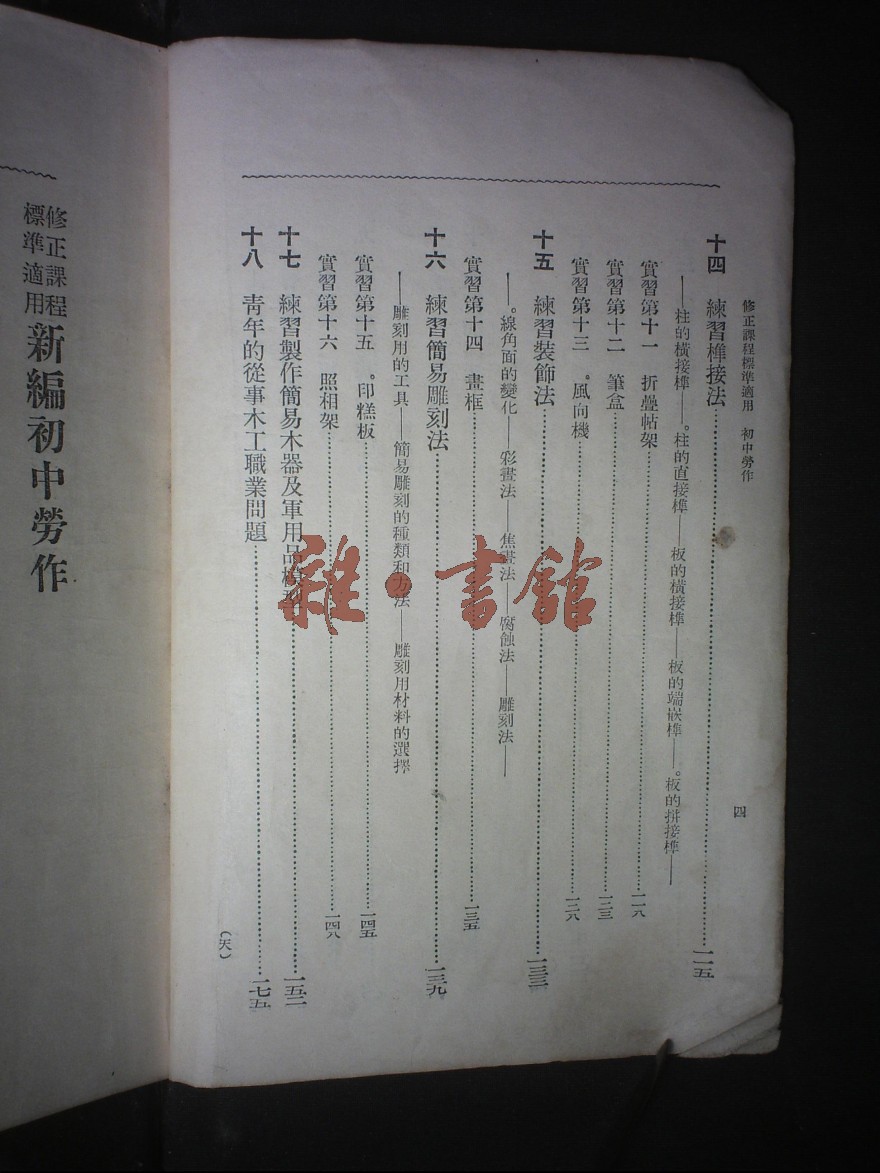 修正課程標準適用 初中勞作
四
十四 練習榫接法……一一五
——柱的橫接榫——。柱的直接榫——板的橫接榫——板的端嵌榫——。板的拼接榫——
實習第十一 折疊帖架……一一八
實習第十二 筆盒……一二三
實習第十三 。風向機……一二八
十五 練習裝飾法……一三三
——。線角面的變化——彩畫法——焦畫法——腐蝕法——雕刻法——
實習第十四 畫框……一三五
十六 練習簡易雕刻法……一三九
——雕刻用的工具——簡易雕刻的種類和方法——雕刻用材料的選擇
實習第十五 。印糕板……一四五
實習第十六 照相架……一四八
十七 練習製作簡易木器及軍用品模型……一五二
十八 青年的從事木工職業問題……一七五
(天)
修正課程
標準適用
新編初中勞作
雜·書館